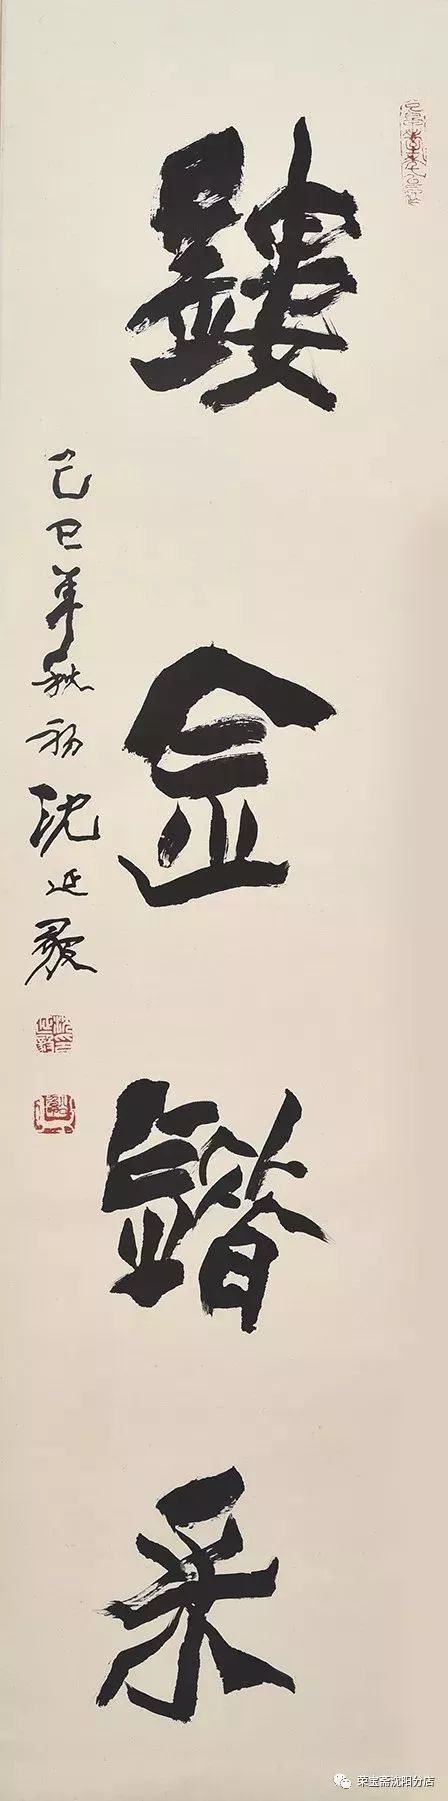 鏤金錯采
己巳年秋初沈延毅
荣宝斋沈阳分店